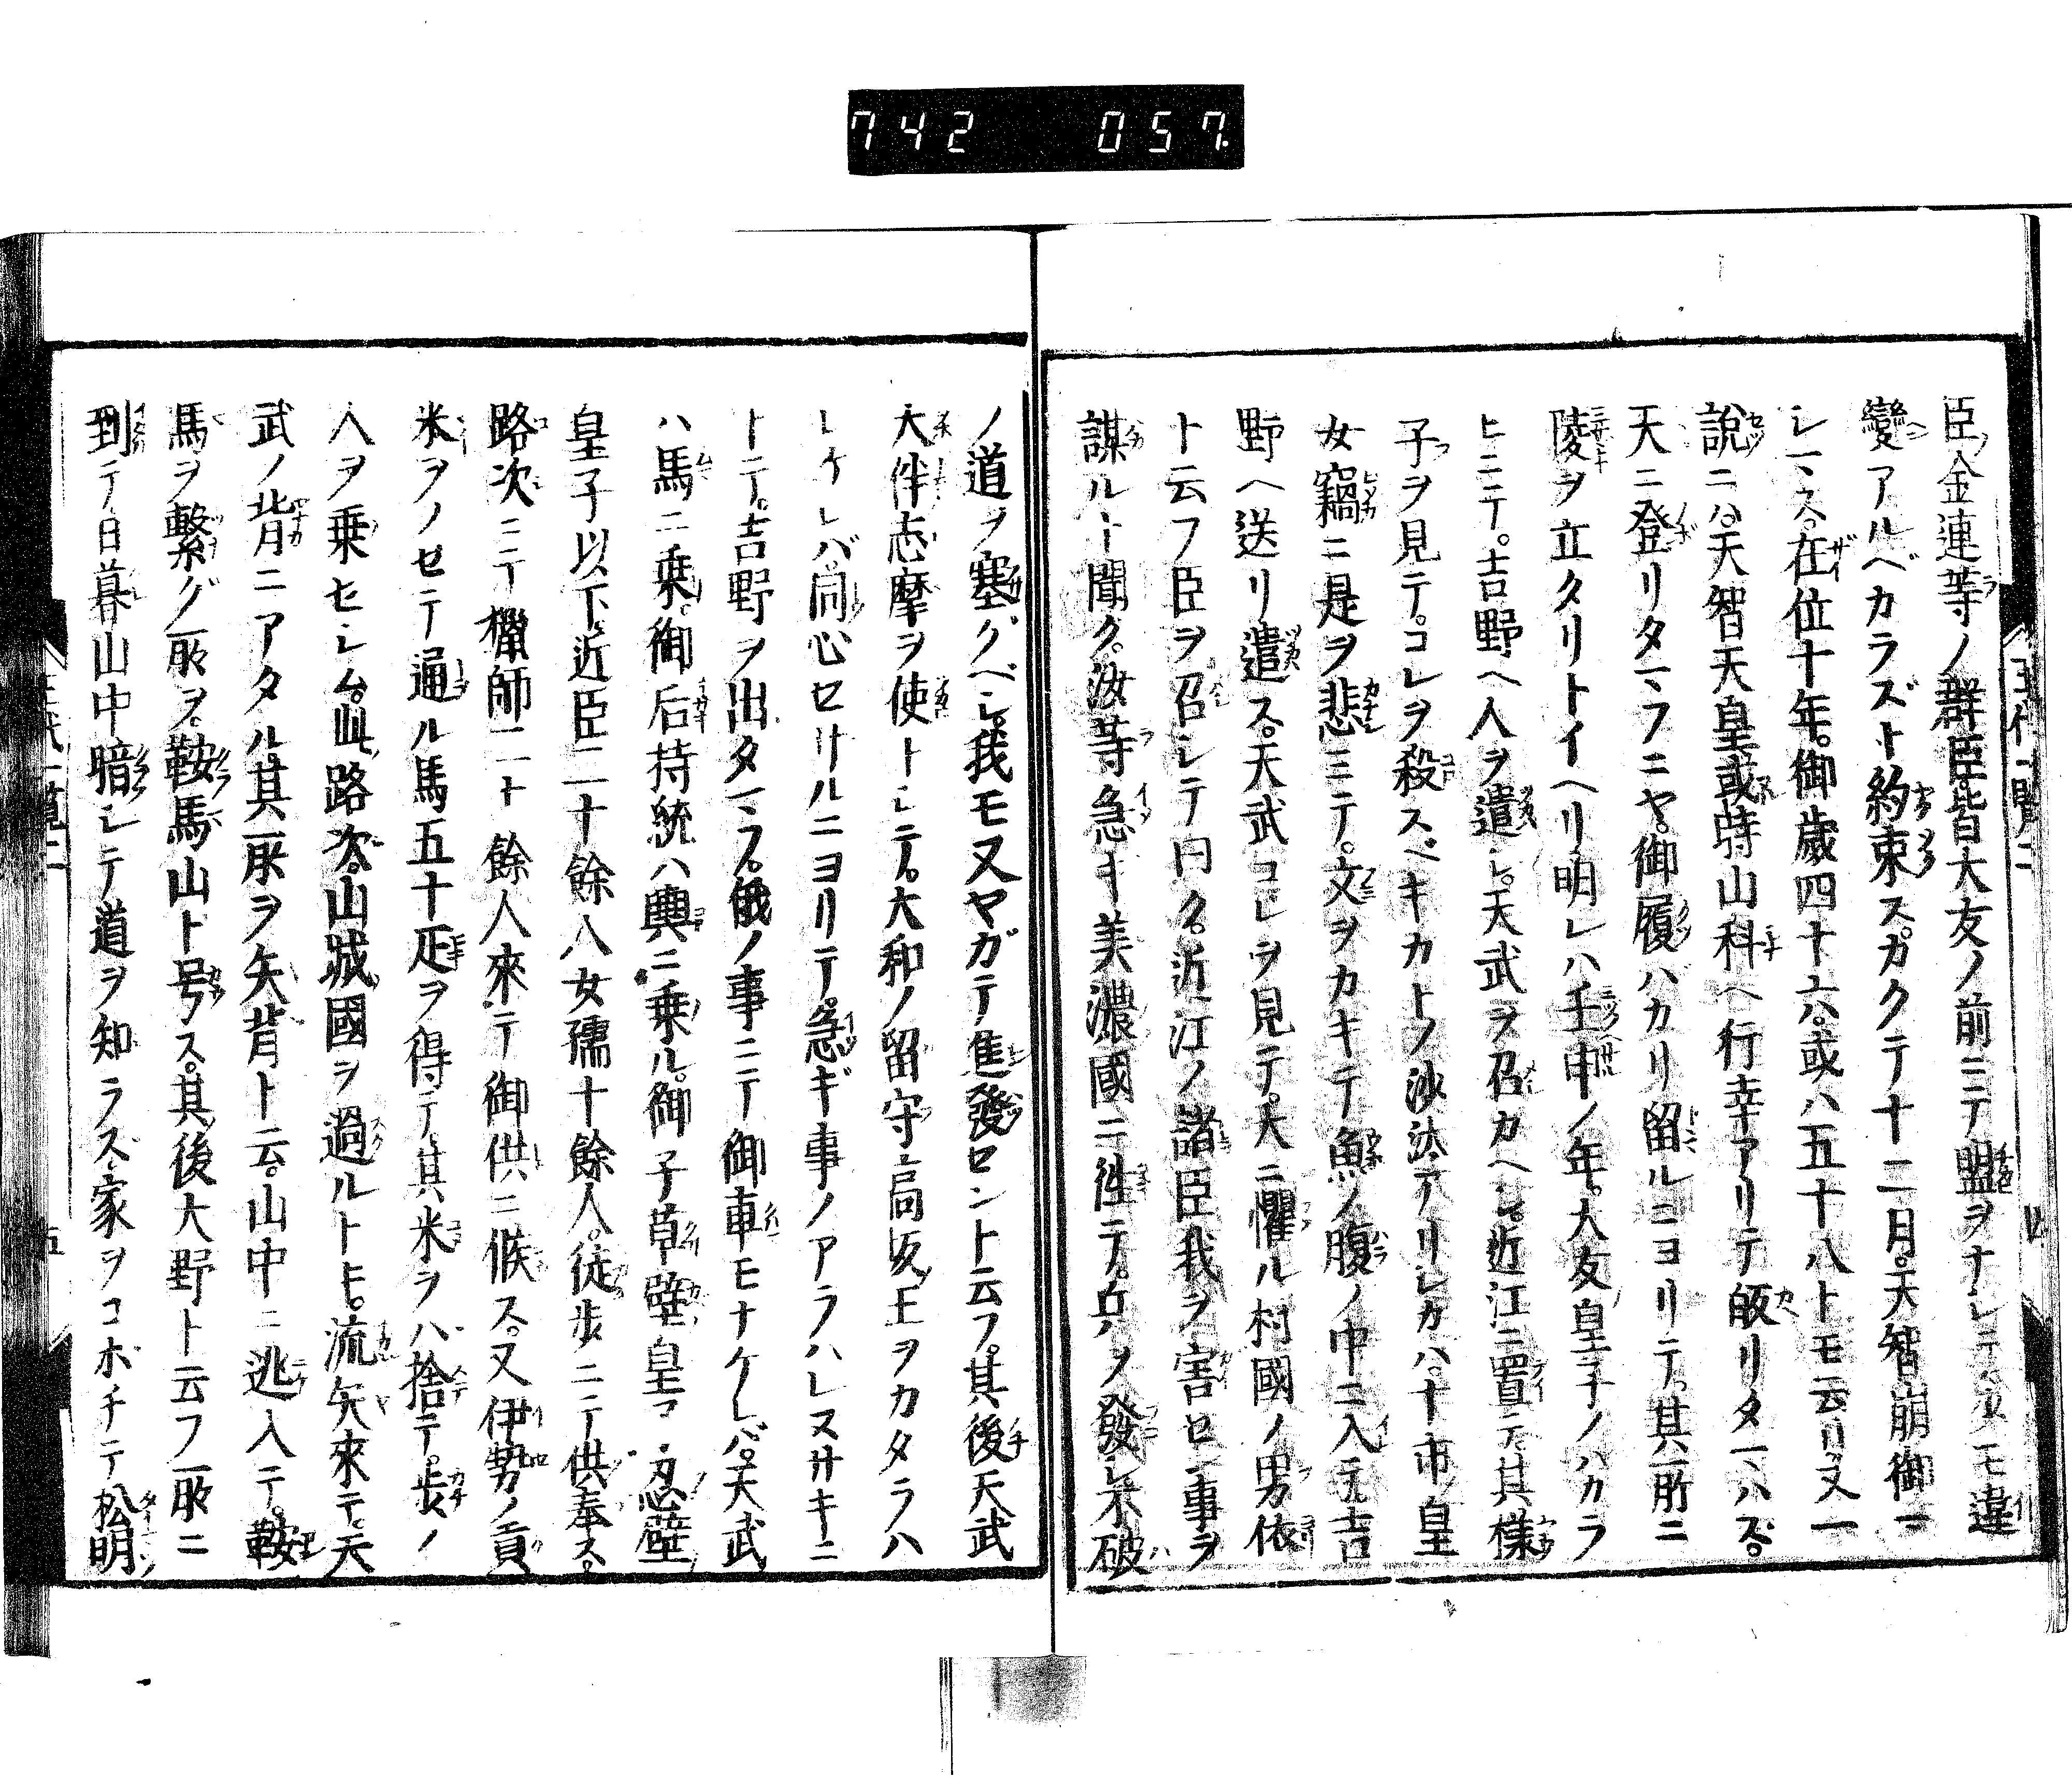 742 057.
臣金連等ノ群臣皆大友ノ前ニテ盟ヲナシテ永モ違
變アルベカラズト約束ス。カクテ十二月。天智崩御一
シマス。在位十年。御歳四十六。或ハ五十八トモ云リ。又一
説ニハ。天智天皇或時山科ヘ行幸アリテ皈リタマハズ。
天ニ登リタマフニヤ。御履バカリ留ルニヨリテ。其所ニ
陵ヲ立タリトイヘリ。明レハ壬申ノ年。大友皇子ノハカラ
ヒニテ。吉野ヘ人ヲ遣シ。天武ヲ召カヘシ。近江ニ置テ其樣
子ヲ見テ。コレヲ殺スベキカトノ沙汰アリシカハ。十市皇
女竊ニ是ヲ悲ミテ。文ヲカキテ魚ノ腹ノ中ニ入テ。吉
野ヘ送リ遣ス。天武コレヲ見テ。大ニ懼ル。村國ノ男依
ト云フ臣ヲ召シテ曰ク。近江ノ諸臣我ヲ害セン事ヲ
謀ルト聞ク。汝等急キ美濃國ニ徃テ。兵ヲ發シ不破
ノ道ヲ塞クベシ。我モ又ヤガテ進發セント云フ。其後天武
大伴志摩ヲ使トシテ。大和ノ留守高坂王ヲカタラハ
シケレバ。同心セサルニヨリテ。急ギ事ノアラハレヌサキニ
トテ。吉野ヲ出タマフ。俄ノ事ニテ御車モナケレバ。天武
ハ馬ニ乗。御后持統ハ輿ニ乗ル。御子草壁皇子忍壁
皇子以下。近臣二十餘人女孺十餘人。徒歩ニテ供奉ス。
路次ニテ獵師二十餘人來テ御供ニ候ス。又伊勢ノ貢
米ヲノセテ通ル馬五十疋ヲ得テ。其米ヲハ捨テ。歩ノ
人ヲ乗セシム。此路次。山城國ヲ過ルトキ。流矢來テ。天
武ノ背ニアタル。其所ヲ矢背ト云。山中ニ逃入テ。鞍
馬ヲ繫グ所ヲ。鞍馬山ト号ス。其後大野ト云フ所ニ
到テ日暮。山中暗シテ道ヲ知ラズ。家ヲコボチテ松明